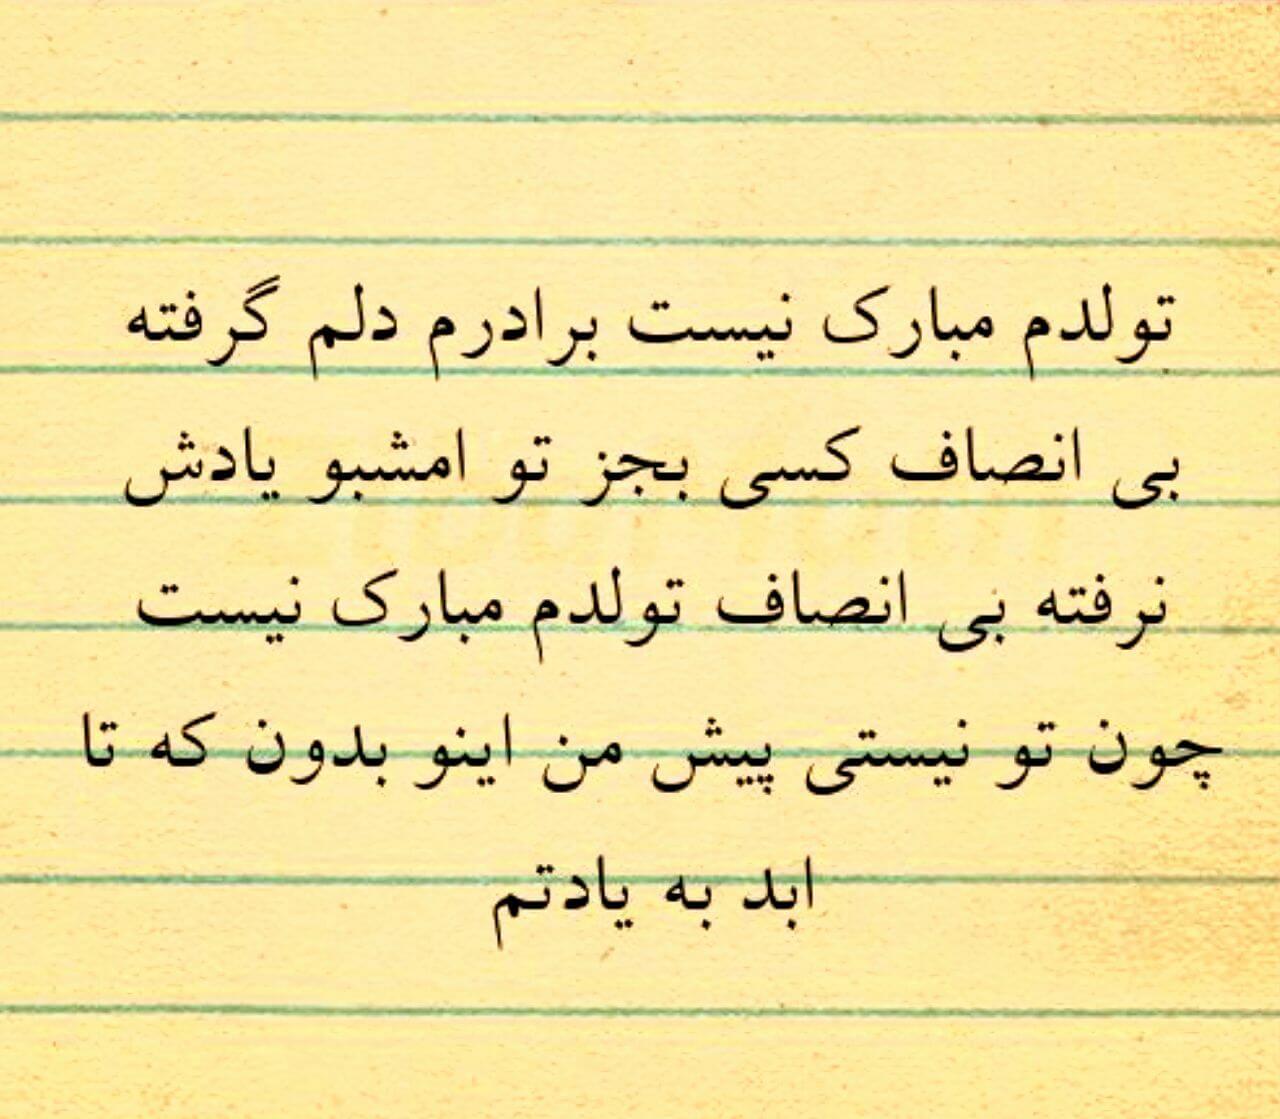 تولدم مبارک نیست برادرم دلم گرفته
بی انصاف کسی بجز تو امشبو یادش
نرفته بی انصاف تولدم مبارک نیست
چون تو نیستی پیش من اینو بدون که تا
ابد به یادتم